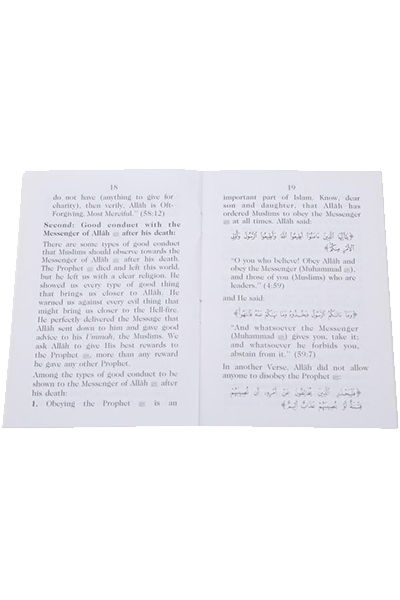 18
do not have (anything to give for
charity), then verily, Allâh is Oft-
Forgiving, Most Merciful.” (58:12)
Second: Good conduct with the
Messenger of Allâh ﷺ after his death:
There are some types of good conduct
that Muslims should observe towards the
Messenger of Allâh ﷺ after his death.
The Prophet ﷺ died and left this world,
but he left us with a clear religion. He
showed us every type of good thing
that brings us closer to Allâh. He
warned us against every evil thing that
might bring us closer to the Hell-fire.
He perfectly delivered the Message that
Allâh sent down to him and gave good
advice to his Ummah, the Muslims. We
ask Allâh to give His best rewards to
the Prophet ﷺ, more than any reward
he gave any other Prophet.
Among the types of good conduct to be
shown to the Messenger of Allâh ﷺ after
his death:
1. Obeying the Prophet ﷺ is an
19
important part of Islam. Know, dear
son and daughter, that Allâh has
ordered Muslims to obey the Messenger
ﷺ at all times. Allâh said:
﴿يَٰٓأَيُّهَا ٱلَّذِينَ ءَامَنُوٓا۟ أَطِيعُوا۟ ٱللَّهَ وَأَطِيعُوا۟ ٱلرَّسُولَ وَأُو۟لِى
ٱلْأَمْرِ مِنكُمْ﴾
“O you who believe! Obey Allâh and
obey the Messenger (Muhammad ﷺ),
and those of you (Muslims) who are
leaders.” (4:59)
and He said:
﴿وَمَآ ءَاتَىٰكُمُ ٱلرَّسُولُ فَخُذُوهُ وَمَا نَهَىٰكُمْ عَنْهُ فَٱنتَهُوا۟﴾
“And whatsoever the Messenger
(Muhammad ﷺ) gives you, take it;
and whatsoever he forbids you,
abstain from it.” (59:7)
In another Verse, Allâh did not allow
anyone to disobey the Prophet ﷺ:
﴿فَلْيَحْذَرِ ٱلَّذِينَ يُخَالِفُونَ عَنْ أَمْرِهِۦٓ أَن تُصِيبَهُمْ
فِتْنَةٌ أَوْ يُصِيبَهُمْ عَذَابٌ أَلِيمٌ﴾